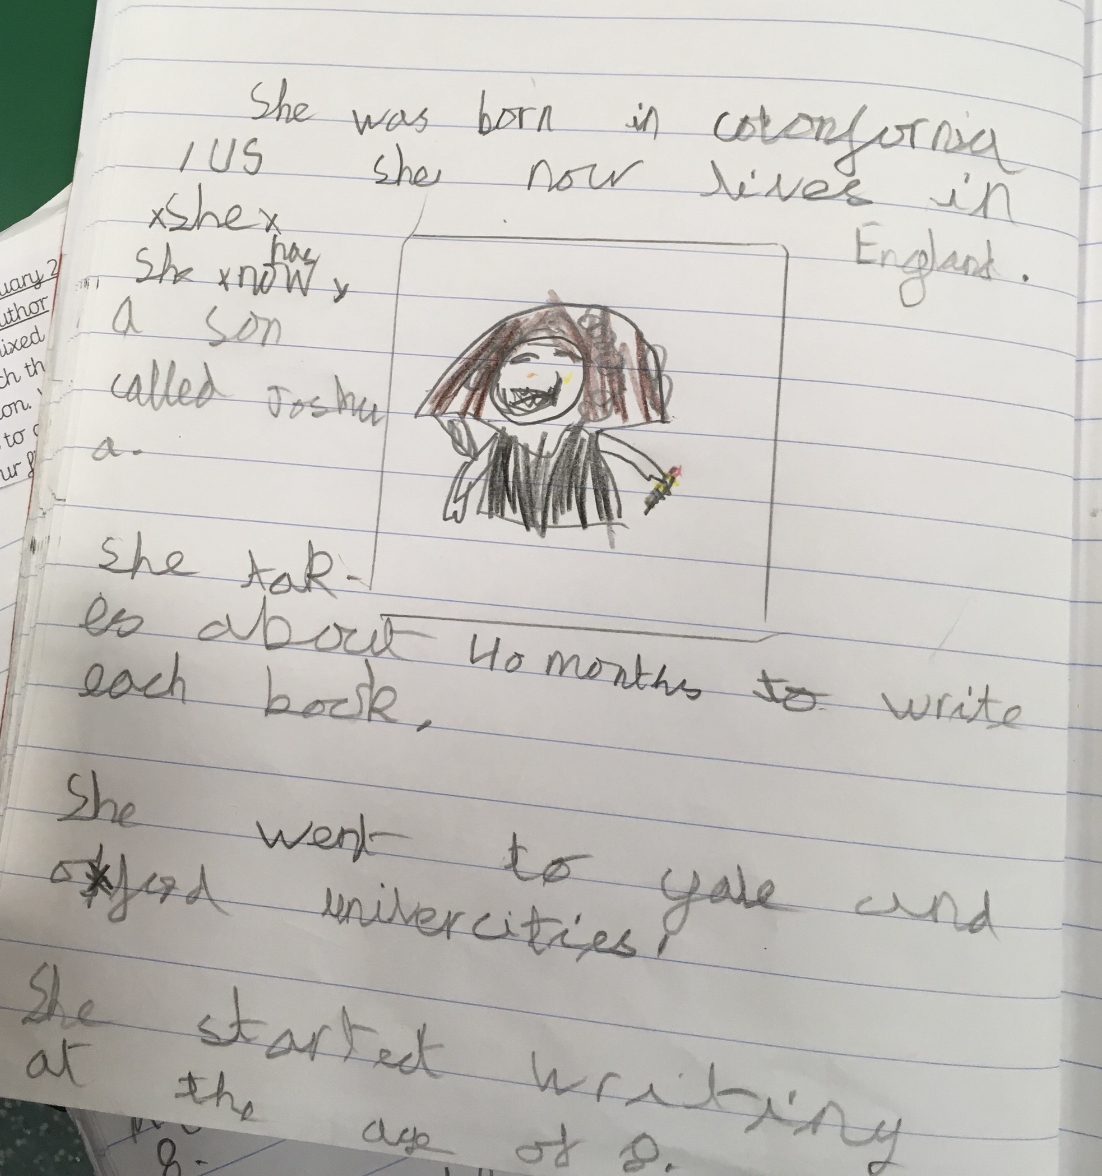 She was born in cotonfornia
/US she now lives in
xshex England.
has
She xnowx
a son
called Joshu
a.
she tak-
es about 40 months to write
each book,
She went to yale and
oxford univercities,
She started writing
at the age of 8.
uary 2
uthor
ixed
ch th
on.
to
ur
8.